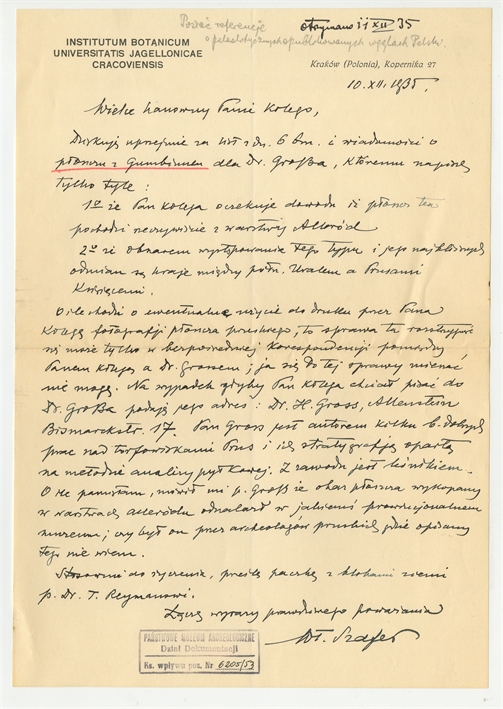 Podać referencję
o paleolitycznych opublikowanych węglach Polski.
otrzymano 11 XII 35
INSTITUTUM BOTANICUM
UNIVERSITATIS JAGELLONICAE
CRACOVIENSIS
Kraków (Polonia), Kopernika 27
10.XII.1935.
Wielce Szanowny Panie Kolego,
Dziękuję uprzejmie za list z dn. 6 bm. i wiadomości o
płoszczu z Gumbinnen dla Dr. Großa, któremu napiszę
tylko tyle:
1º że Pan Kolega oczekuje dowodu iż płoszcz ten
pochodzi rzeczywiście z warstwy Alleröd
2º że obszarem występowania tego typu i jego najbliższych
odmian są kraje między połn. Uralem a Prusami
Książęcemi.
O ile chodzi o ewentualne użycie do druku przez Pana
Kolegę fotografji płoszcza pruskiego, to sprawa ta rozstrzygnąć
się może tylko w bezpośredniej korespondencji pomiędzy
Panem Kolegą a dr. Grossem; ja się do tej sprawy mieszać
nie mogę. Na wypadek gdyby Pan Kolega chciał pisać do
Dr. Großa podaję jego adres: Dr. H. Gross, Allenstein
Bismarckstr. 17. Pan Gross jest autorem kilku b. dobrych
prac nad torfowiskami Prus i ich stratygrafją opartą
na metodzie analizy pyłkowej. Z zawodu jest leśnikiem.
O ile pamiętam, mówił mi p. Groß że okaz płoszcza wykopany
w warstwach allerödu odnalazł w jakiemś prowincjonalnem
muzeum; czy był on przez archeologów pruskich gdzie opisany
tego nie wiem.
Stosownie do życzenia, prześlę paczkę z próbami ziemi
p. Dr. T. Reymanowi.
Łączę wyrazy prawdziwego poważania
Wł. Szafer
PAŃSTWOWE MUZEUM ARCHEOLOGICZNE
Dział Dokumentacji
Ks. wpływu poz. Nr 6205/53